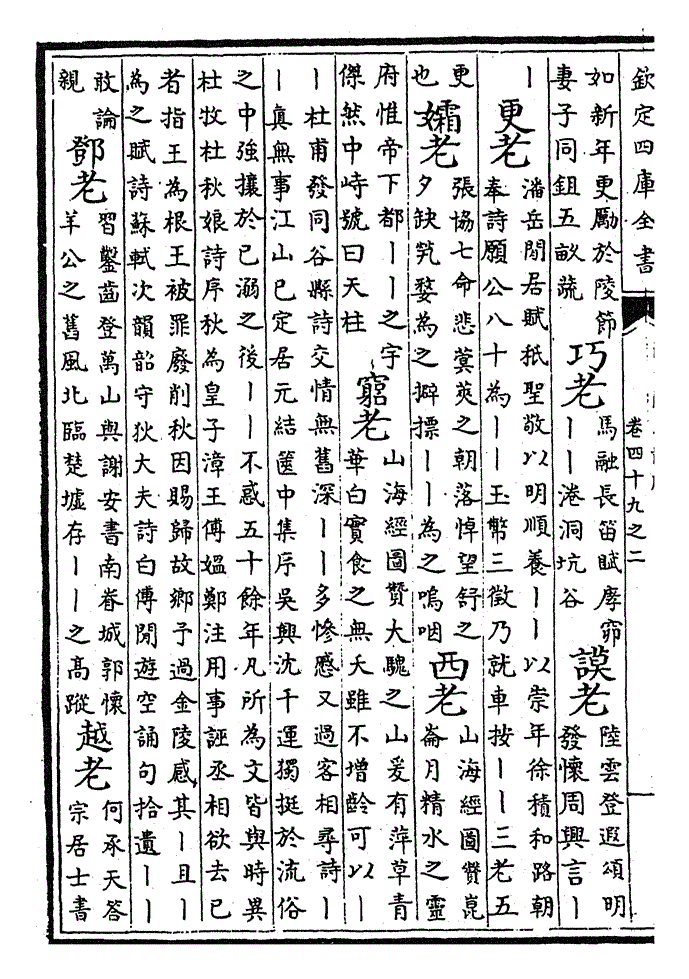 欽定四庫全書
卷四十九之二
如新年更勵於陵節
妻子同鉏五畝蔬
巧老
馬融長笛賦摩窌
｜｜港洞坑谷
謨老
陸雲登遐頌明
發懷周興言｜
｜
更老
潘岳閒居賦秪聖敬以明順養｜｜以崇年徐積和路朝
奉詩願公八十為｜｜玉幣三徵乃就車按｜｜三老五
更
也
孀老
張協七命悲蓂莢之朝落悼望舒之
夕缺煢嫠為之擗摽｜｜為之嗚咽
西老
山海經圖贊崑
崙月精水之靈
府惟帝下都｜｜之宇
傑然中峙號曰天柱
窮老
山海經圖贊大騩之山爰有萍草青
華白實食之無夭雖不增齡可以｜
｜杜甫發同谷縣詩交情無舊深｜｜多慘慼又過客相尋詩｜
｜真無事江山已定居元結篋中集序吳興沈千運獨挺於流俗
之中強攘於已溺之後｜｜不惑五十餘年凡所為文皆與時異
杜牧杜秋娘詩序秋為皇子漳王傅媼鄭注用事誣丞相欲去已
者指王為根王被罪廢削秋因賜歸故鄉予過金陵感其｜且｜
為之賦詩蘇軾次韻韶守狄大夫詩白傅閒遊空誦句拾遺｜｜
敢論
親
鄧老
習鑿齒登萬山與謝安書南眷城郭懷
羊公之舊風北臨楚墟存｜｜之高蹤
越老
何承天答
宗居士書